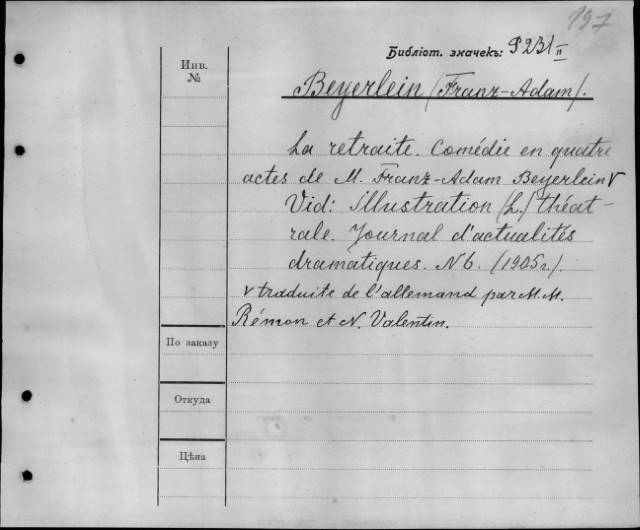 197
Библіот. значекъ: P231 II
Инв.
№
Beyerlein (Franz-Adam).
La retraite. Comédie en quatre
actes de M. Franz-Adam Beyerlein v
Vid: illustration (L.) théat-
rale. Journal d'actualités
dramatiques. N 6. (1905 г.).
v traduite de l'allemand par M.M.
Rémon et N. Valentin.
По заказу
Откуда
Цѣна